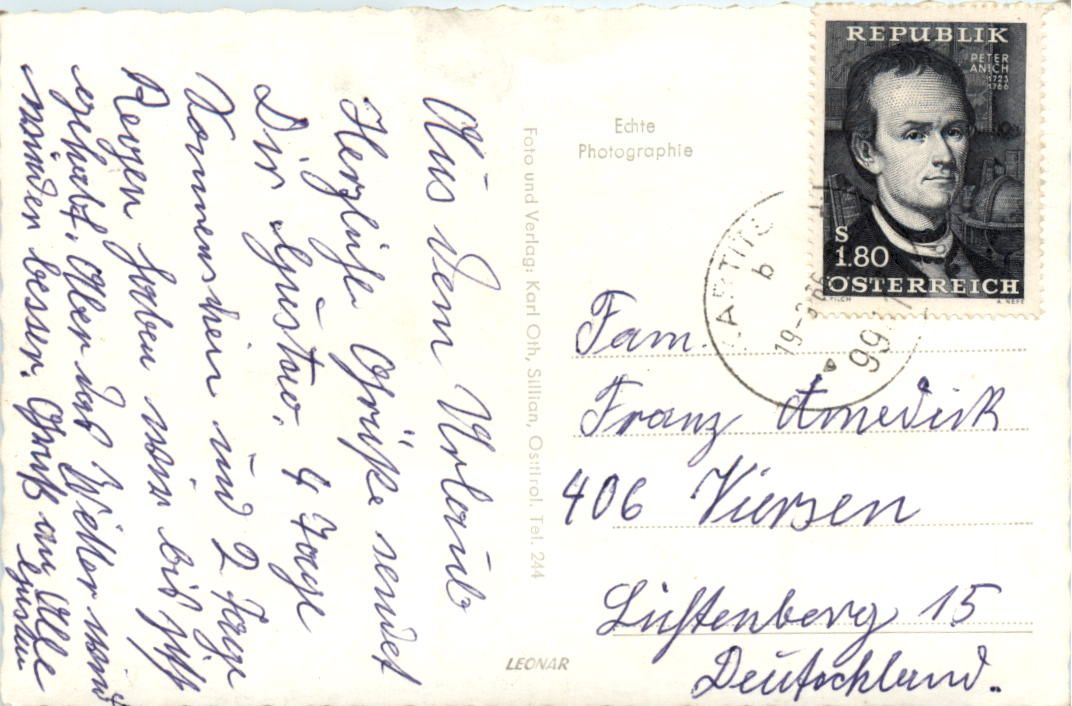 Aus dem Urlaub
Herzliche Grüße sendet
Dir Gustav. 4 Tage
Sonnenschein und 2 Tage
Regen haben wir bis jetzt
gehabt. Aber das Wetter wird
wieder besser. Gruß an Alle
Gustav
Foto und Verlag: Karl Oth, Sillian, Osttirol. Tel. 244
LEONAR
Echte
Photographie
REPUBLIK
PETER
ANICH
1723
1766
S
1.80
ÖSTERREICH
PILCH
A. NEFE
b
19-
99
Fam.
Franz Amedick
406 Viersen
Lichtenberg 15
Deutschland.